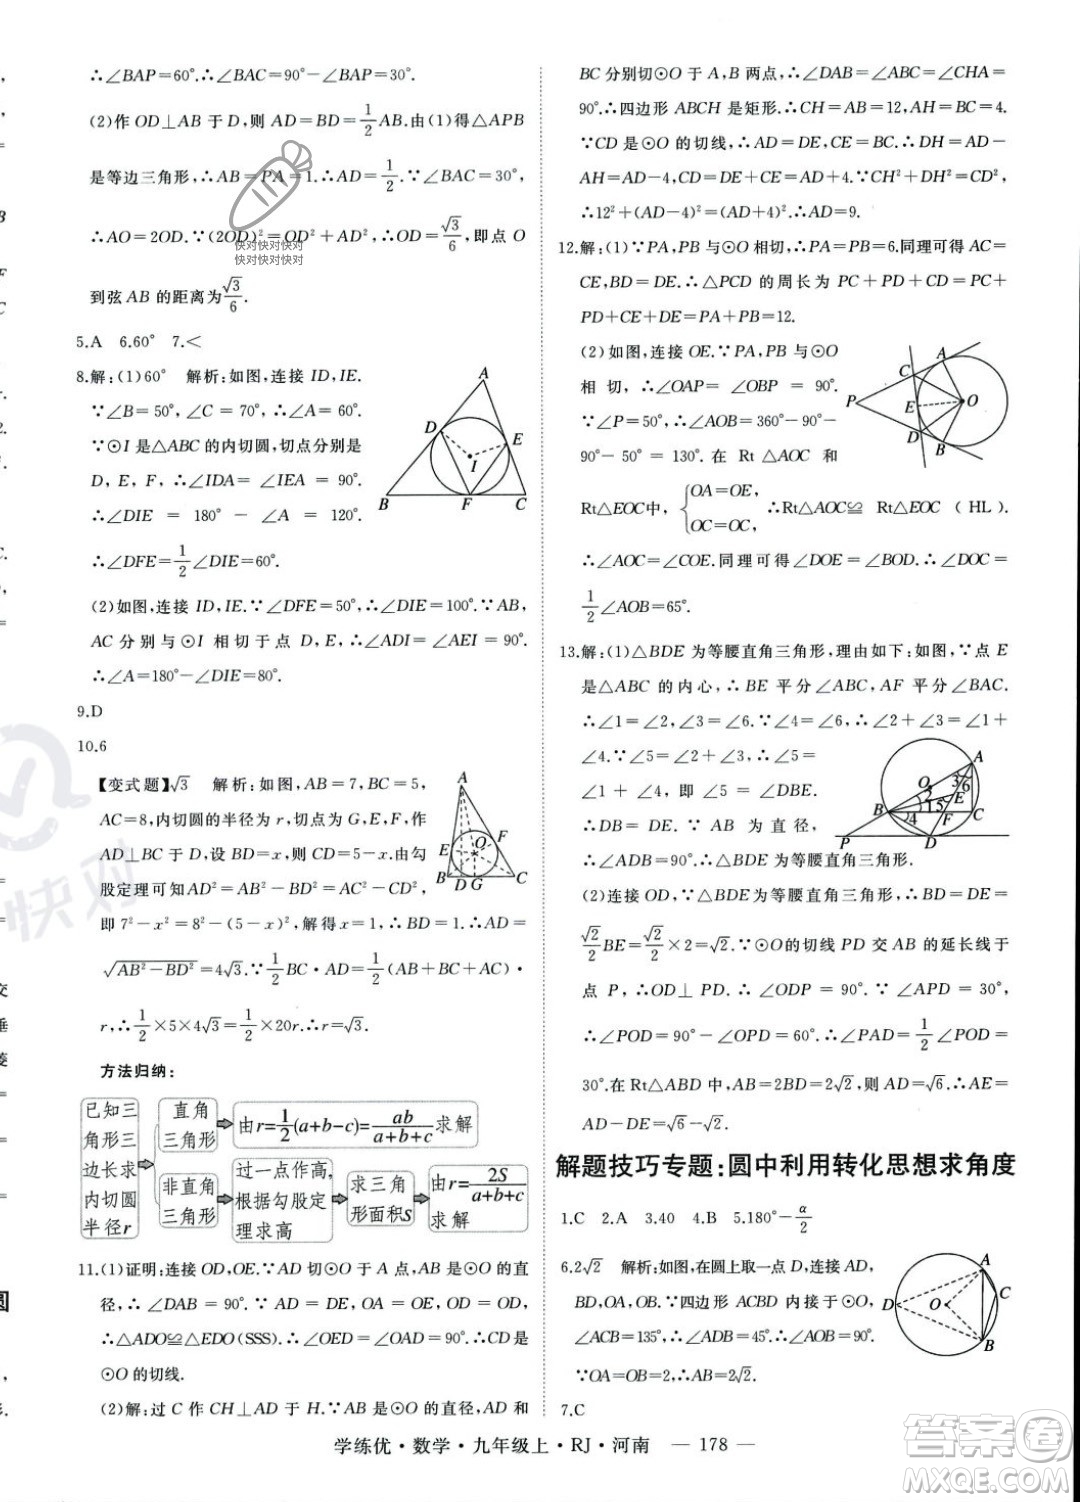 ∴∠BAP=60°.∴∠BAC=90°-∠BAP=30°.
(2)作 OD⊥AB 于 D,则 AD=BD=1/2AB.由(1)得△APB
是等边三角形,∴AB=PA=1.∴AD=1/2.∵∠BAC=30°,
∴AO=2OD.∵(2OD)²=OD²+AD²,∴OD=√3/6,即点 O
快对快对快对
快对快对快对
到弦 AB 的距离为√3/6.
5.A 6.60° 7.<
8.解:(1)60° 解析:如图,连接 ID,IE.
∵∠B=50°,∠C=70°,∴∠A=60°.
∵⊙I 是△ABC 的内切圆,切点分别是
D,E,F,∴∠IDA=∠IEA=90°.
∴∠DIE=180°-∠A=120°.
∴∠DFE=1/2∠DIE=60°.
A
D
E
I
B
F
C
(2)如图,连接 ID,IE.∵∠DFE=50°,∴∠DIE=100°.∵AB,
AC 分别与⊙I 相切于点 D,E,∴∠ADI=∠AEI=90°.
∴∠A=180°-∠DIE=80°.
9.D
10.6
【变式题】√3 解析:如图,AB=7,BC=5,
AC=8,内切圆的半径为 r,切点为 G,E,F,作
AD⊥BC 于 D,设 BD=x,则 CD=5-x.由勾
股定理可知AD²=AB²-BD²=AC²-CD²,
即 7²-x²=8²-(5-x)²,解得 x=1,∴BD=1.∴AD=
√(AB²-BD²)=4√3.∵1/2BC·AD=1/2(AB+BC+AC)·
r,∴1/2×5×4√3=1/2×20r.∴r=√3.
A
F
E
O
B
D
G
C
方法归纳:
已知三
角形三
边长求
内切圆
半径r
直角
三角形
由r=1/2(a+b-c)=ab/(a+b+c)求解
非直角
三角形
过一点作高,
根据勾股定
理求高
求三角
形面积S
由r=2S/(a+b+c)
求解
11.(1)证明:连接 OD,OE.∵AD 切⊙O 于 A 点,AB 是⊙O 的直
径,∴∠DAB=90°.∵DA=DE,OA=OE,OD=OD,
∴△ADO≌△EDO(SSS).∴∠OED=∠OAD=90°.∴CD 是
⊙O 的切线.
(2)解:过 C 作 CH⊥AD 于 H.∵AB 是⊙O 的直径,AD 和
BC 分别切⊙O 于 A,B 两点,∴∠BAD=∠ABC=∠CHA=
90°.∴四边形 ABCH 是矩形.∴CH=AB=12,AH=BC=4.
∵CD 是⊙O 的切线,∴AD=DE,CE=BC.∴DH=AD-
AH=AD-4,CD=AD+4.∵CH²+DH²=CD²,
∴12²+(AD-4)²=(AD+4)².∴AD=9.
12.解:(1)∵PA,PB 与⊙O 相切,∴PA=PB=6.同理可得 AC=
CE,BD=DE.∴△PCD 的周长为 PC+PD+CD=PC+PD+
CE+DE=PA+PB=12.
(2)如图,连接 OE.∵PA,PB 与⊙O
相切,∴∠OAP=∠OBP=90°.
∵∠P=50°,∴∠AOB=360°-90°-
90°-50°=130°.在 Rt△AOC 和
P
C
A
E
O
D
B
Rt△EOC中,{OA=OE, OC=OC, ∴Rt△AOC≌Rt△EOC(HL).
∴∠AOC=∠COE.同理可得∠DOE=∠BOD.∴∠COD=
1/2∠AOB=65°.
13.解:(1)△BDE 为等腰直角三角形,理由如下:如图,∵点 E
是△ABC 的内心,∴BE 平分∠ABC,AD 平分∠BAC.
∴∠1=∠2,∠3=∠6.∵∠4=∠6,∴∠3=∠4.∴∠1+
∠4=∠2+∠3.∵∠5=∠2+∠3,
∴∠1+∠4=∠5,即∠5=∠DBE.
∴DB=DE.∵AB 为直径,
∴∠ADB=90°.∴△BDE 为等腰直角三角形.
A
O
3
6
2
E
B
1
5
C
4
F
P
D
(2)连接 OD,∵△BDE为等腰直角三角形,∴BD=DE=
√2/2BE=√2/2×2=√2.∵⊙O的切线 PD 交 AB 的延长线于
点 P,∴OD⊥PD,∴∠ODP=90°.∵∠APD=30°,
∴∠POD=90°-∠OPD=60°.∴∠PAD=1/2∠POD=
30°.在 Rt△ABD 中,AB=2BD=2√2,则 AD=√6.∴AE=
AD-DE=√6-√2.
解题技巧专题:圆中利用转化思想求角度
1.C 2.A 3.40 4.B 5.180°-α/2
6.2√2 解析:如图,在圆上取一点 D,连接AD,
BD,OA,OB.∵四边形 ACBD 内接于⊙O,
∠ACB=135°,∴∠ADB=45°.∴∠AOB=90°.
∵OA=OB=2,∴AB=2√2.
7.C
A
C
D
O
B
学练优·数学·九年级上·RJ·河南 — 178 —
快对
答案圈
MXQE.COM